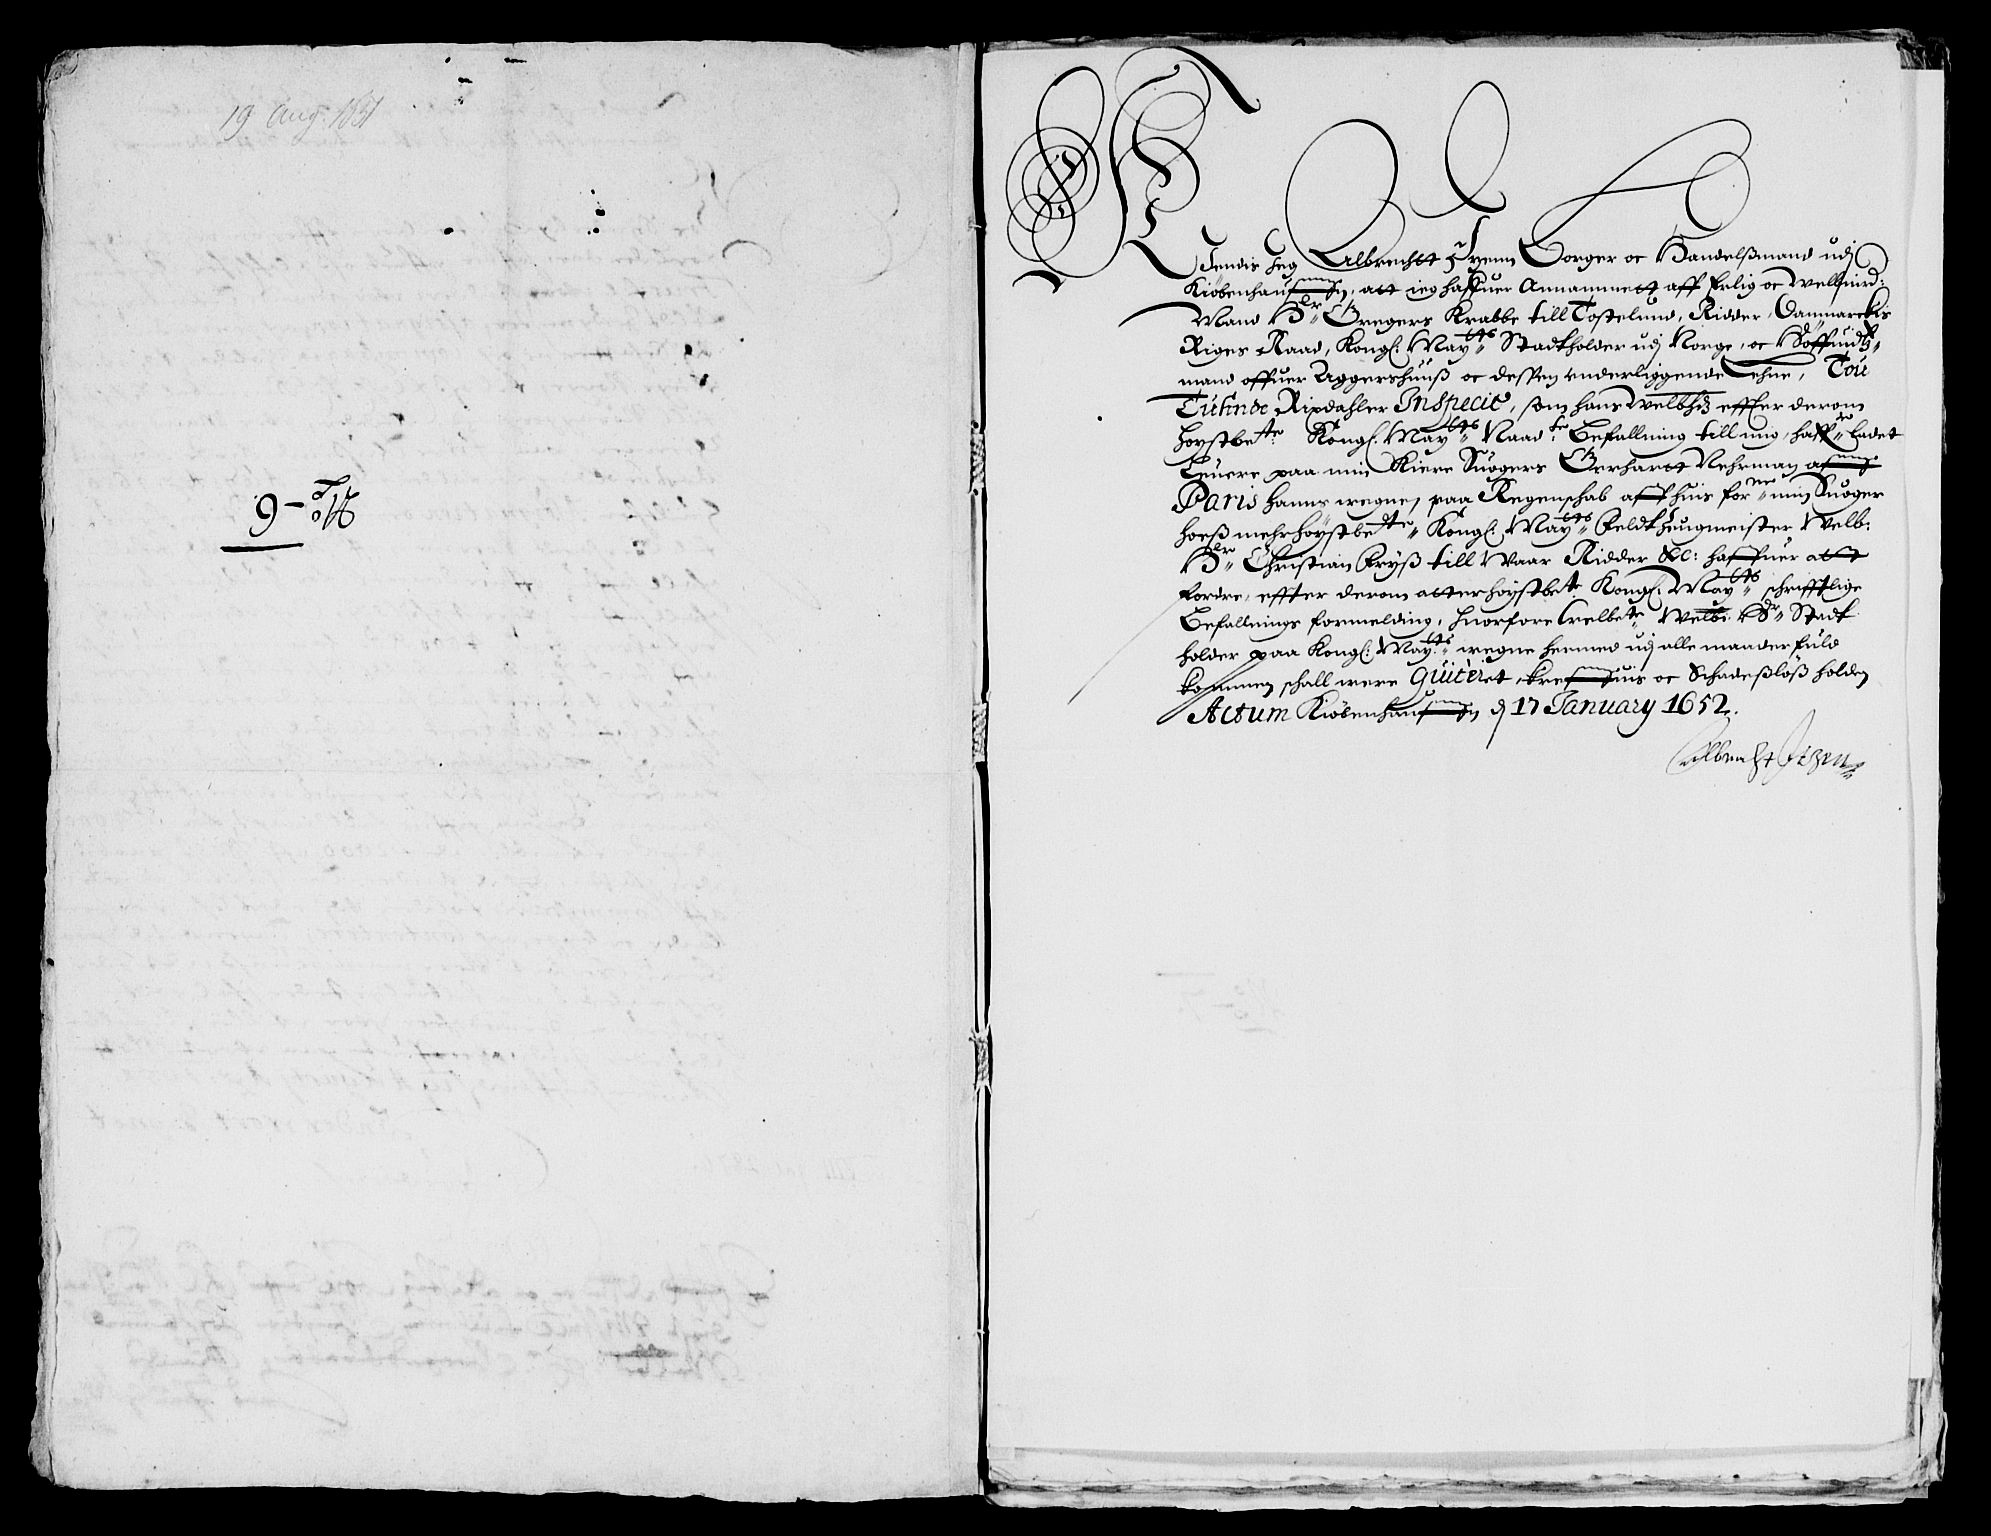 19 Aug. 1651
No
9
Kiendis Jeg Albrechtt Itzenn Borger oc Handelßmand udj
Kiøbenhauffn, att ieg haffuer Annammett aff Erlig oc Welbiurd:
Mand Hr Gregers Krabbe till Tostelund, Ridder, Danmarckis
Riges Raad, Kongl: Mayts Stadtholder udj Norge, oc Høffuidtz-
mand offuer Aggershuuß oc dessen underliggende Lehne, Tou
Tusinde Rixdahler Inspecie, som hans Welbhd effter derom
høystbete Kongl: Mayts Naadte Befallning till mig, haffr ladet
Leuere paa min Kiere Suogers Gerhartt Nehrman aff
Paris hanns wegne, paa Regenschab aff huis forne min Suoger
hoeß mehrhøystbedte Kongl: Mayts Feldt Zeugmeister Welb:
Hr Christian Fryß till Waar Ridder &c: haffuer att
fordre, effter derom atterhøystbete Kongl: Mayts schrifftlige
Befallnings formelding, huorfore Welbte Welb: Hr Stadt
holder paa Kongl: Mayts wegne hermed udj alle maader fuld
kommen schall were Quiteret, kreffuis oc Schadeßlöß holden
Actum Kiøbenhauffn d 17 January 1652.
Albrecht Itzen